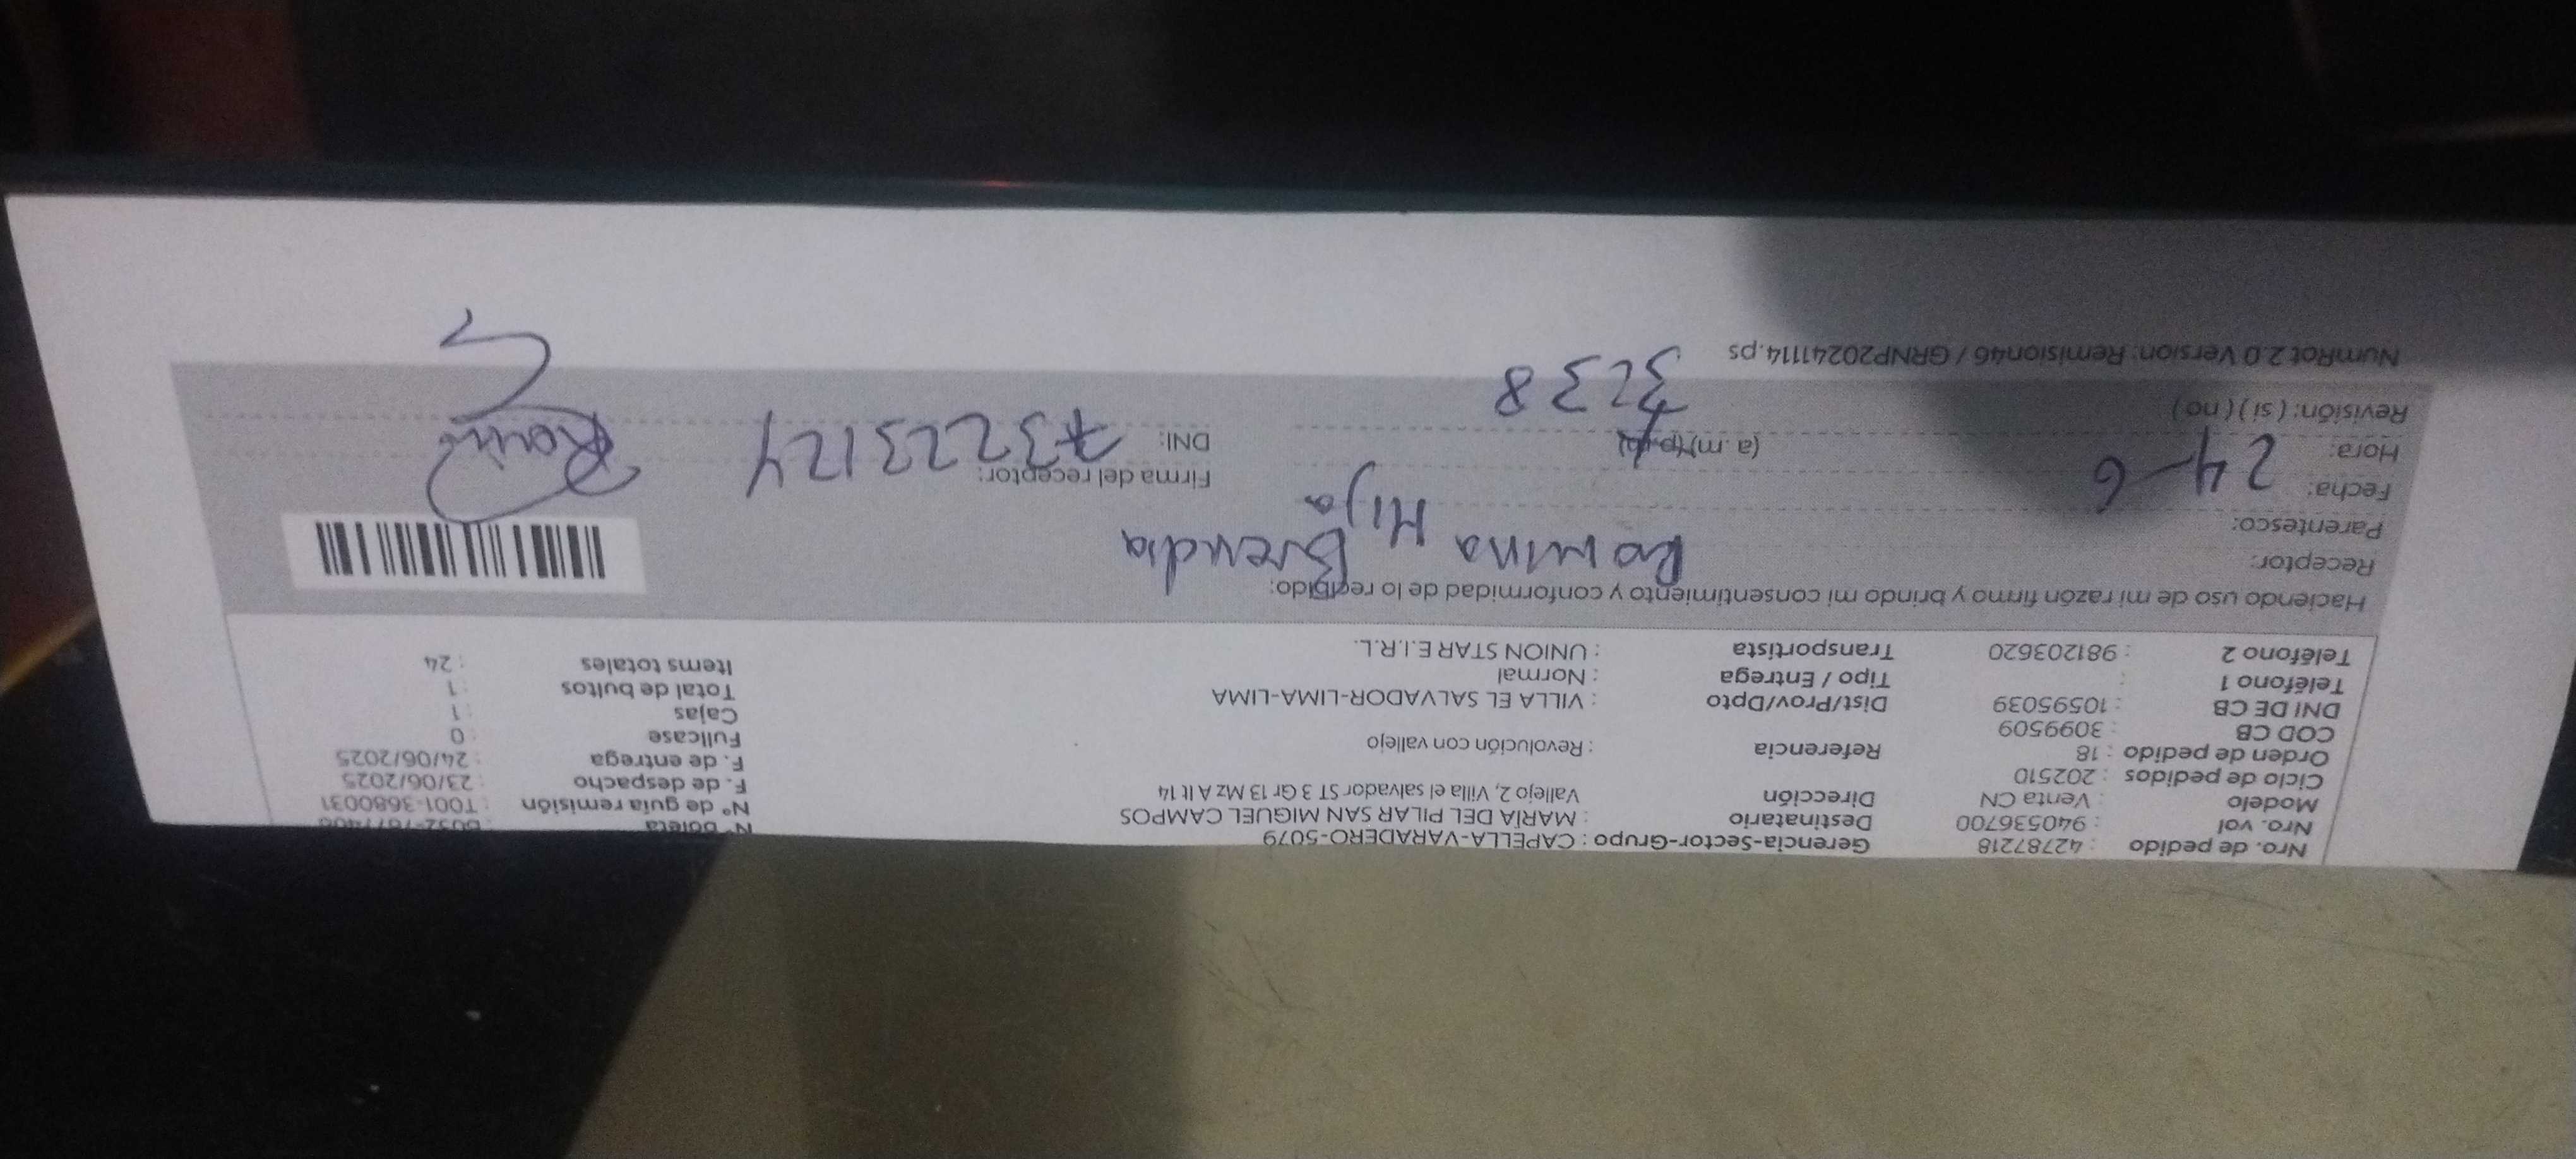 Nro. de pedido : 42787218 Gerencia-Sector-Grupo : CAPELLA-VARADERO-5079
Nro. vol : 940536700 Destinatario : MARÍA DEL PILAR SAN MIGUEL CAMPOS N° boleta
Modelo : Venta CN Dirección Vallejo 2, Villa el salvador ST 3 Gr 13 Mz A lt 14 N° de guía remisión : T001-3680031
Ciclo de pedidos : 202510 F. de despacho : 23/06/2025
Orden de pedido : 18 Referencia : Revolución con vallejo F. de entrega : 24/06/2025
COD CB : 3099509 Fullcase : 0
DNI DE CB : 10595039 Dist/Prov/Dpto : VILLA EL SALVADOR-LIMA-LIMA Cajas : 1
Teléfono 1 : Tipo / Entrega : Normal Total de bultos : 1
Teléfono 2 : 981203620 Transportista : UNION STAR E.I.R.L. Items totales : 24
Haciendo uso de mi razón firmo y brindo mi consentimiento y conformidad de lo recibido:
Receptor: Romina Brenda
Parentesco: Hija
Fecha: 24-6 Firma del receptor:
Hora: (a.m)(p.m) DNI: 73223124
Revisión: (si) (no) 3238
NumRot 2.0 Version: Remision46 / GRNP20241114.ps